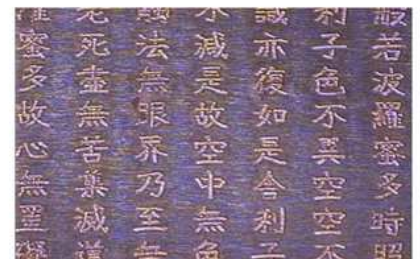 般若波羅蜜多時照
利子色不異空空不
識亦復如是舍利子
不減是故空中無色
觸法無眼界乃至無
老死盡無苦集滅道
羅蜜多故心無罣礙